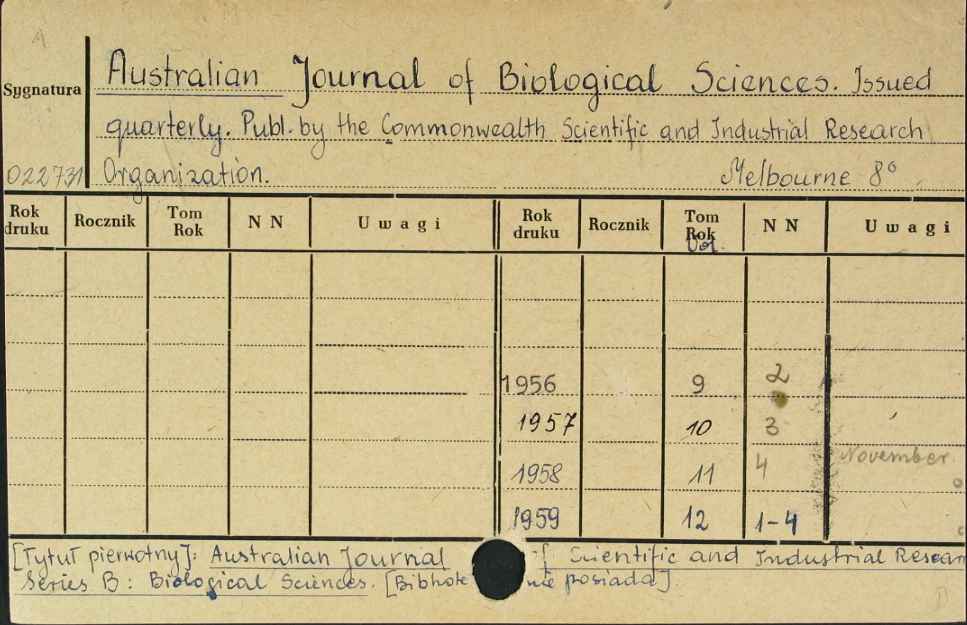 A
Sygnatura
Australian Journal of Biological Sciences. Issued
quarterly. Publ. by the Commonwealth Scientific and Industrial Research
022731 Organization. Melbourne 8°
Rok druku Rocznik Tom Rok N N Uwagi Rok druku Rocznik Tom Rok N N Uwagi
Vol.
1956 9 2
1957 10 3
1958 11 4 November
1959 12 1-4
[Tytuł pierwotny]: Australian Journal of Scientific and Industrial Resear
Series B: Biological Sciences. [Bibliote nie posiada].